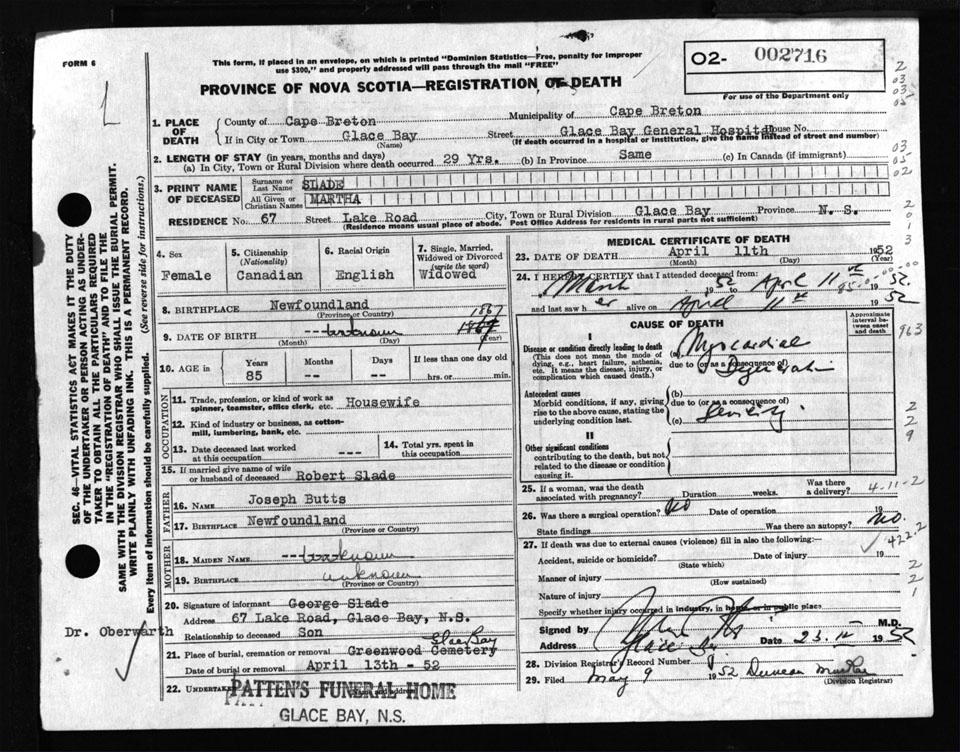 FORM 6
This form, if placed in an envelope, on which is printed "Dominion Statistics—Free, penalty for improper
use $300," and properly addressed will pass through the mail "FREE"
O2- 002716
For use of the Department only
PROVINCE OF NOVA SCOTIA—REGISTRATION OF DEATH
1. PLACE OF DEATH
County of Cape Breton Municipality of Cape Breton
If in City or Town Glace Bay Street Glace Bay General Hospital House No.
(Name) (If death occurred in a hospital or institution, give the name instead of street and number)
2. LENGTH OF STAY (in years, months and days)
(a) In City, Town or Rural Division where death occurred 29 Yrs. (b) In Province Same (c) In Canada (if immigrant)
3. PRINT NAME OF DECEASED
Surname or Last Name SLADE
All Given or Christian Names MARTHA
RESIDENCE No. 67 Street Lake Road City, Town or Rural Division Glace Bay Province N. S.
(Residence means usual place of abode. Post Office Address for residents in rural parts not sufficient)
4. Sex
Female
5. Citizenship
(Nationality)
Canadian
6. Racial Origin
English
7. Single, Married,
Widowed or Divorced
(write the word)
Widowed
8. BIRTHPLACE Newfoundland
(Province or Country)
9. DATE OF BIRTH --- unknown 1867
(Month) (Day) (Year)
10. AGE in
Years Months Days If less than one day old
85 -- -- hrs. or min.
OCCUPATION
11. Trade, profession, or kind of work as
spinner, teamster, office clerk, etc. Housewife
12. Kind of industry or business, as cotton-
mill, lumbering, bank, etc.
13. Date deceased last worked
at this occupation ---
14. Total yrs. spent in
this occupation
15. If married give name of wife
or husband of deceased Robert Slade
FATHER
16. NAME Joseph Butts
17. BIRTHPLACE Newfoundland
(Province or Country)
MOTHER
18. MAIDEN NAME --unknown
19. BIRTHPLACE unknown
(Province or Country)
20. Signature of informant George Slade
Address 67 Lake Road, Glace Bay, N.S.
Relationship to deceased Son
21. Place of burial, cremation or removal Greenwood Cemetery Glace Bay
Date of burial or removal April 13th - 52
22. Undertaker PATTEN'S FUNERAL HOME
GLACE BAY, N.S.
MEDICAL CERTIFICATE OF DEATH
23. DATE OF DEATH April 11th 1952
(Month) (Day) (Year)
24. I HEREBY CERTIFY that I attended deceased from:
March 1952 to April 11 1952
and last saw her alive on April 11th 1952
CAUSE OF DEATH
Approximate
interval be-
tween onset
and death
I
Disease or condition directly leading to death
(This does not mean the mode of
dying, e.g., heart failure, asthenia,
etc. It means the disease, injury, or
complication which caused death.)
(a) Myocardial
due to (or as a consequence of)
Antecedent causes
Morbid conditions, if any, giving
rise to the above cause, stating the
underlying condition last.
(b)
due to (or as a consequence of)
(c) Senility
II
Other significant conditions
contributing to the death, but not
related to the disease or condition
causing it.
25. If a woman, was the death
associated with pregnancy? Duration weeks. Was there
a delivery?
4-11-2
26. Was there a surgical operation? No Date of operation 19
State findings Was there an autopsy? No.
422.2
27. If death was due to external causes (violence) fill in also the following:—
Accident, suicide or homicide? Date of injury 19
(State which)
Manner of injury
(How sustained)
Nature of injury
Specify whether injury occurred in industry, in home, or in public place
Signed by M.D.
Address Glace Bay Date 23. IV 1952
28. Division Registrar's Record Number
29. Filed May 9 1952 Duncan MacRae
(Division Registrar)
SEC. 46—VITAL STATISTICS ACT MAKES IT THE DUTY
OF THE UNDERTAKER OR PERSON ACTING AS UNDER-
TAKER TO OBTAIN ALL THE PARTICULARS REQUIRED
IN THE "REGISTRATION OF DEATH" AND TO FILE THE
SAME WITH THE DIVISION REGISTRAR WHO SHALL ISSUE THE BURIAL PERMIT.
WRITE PLAINLY WITH UNFADING INK. THIS IS A PERMANENT RECORD.
Every item of information should be carefully supplied. (See reverse side for instructions.)
Dr. Oberwarth
2
03
03
05
03
05
02
2
0
1
3
963
2
2
9
2
2
1